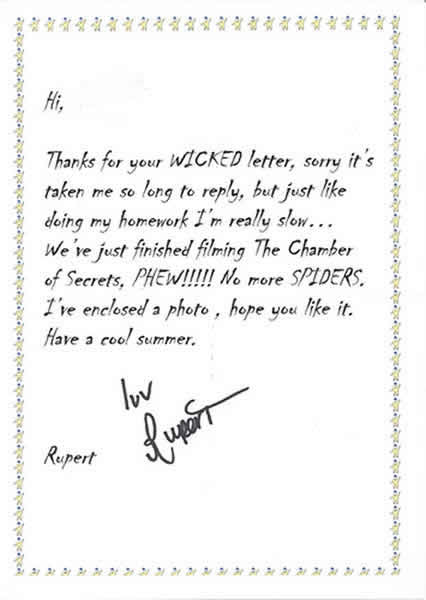 Hi,
Thanks for your WICKED letter, sorry it's
taken me so long to reply, but just like
doing my homework I'm really slow...
We've just finished filming The Chamber
of Secrets, PHEW!!!!! No more SPIDERS.
I've enclosed a photo , hope you like it.
Have a cool summer.
luv
Rupert
Rupert